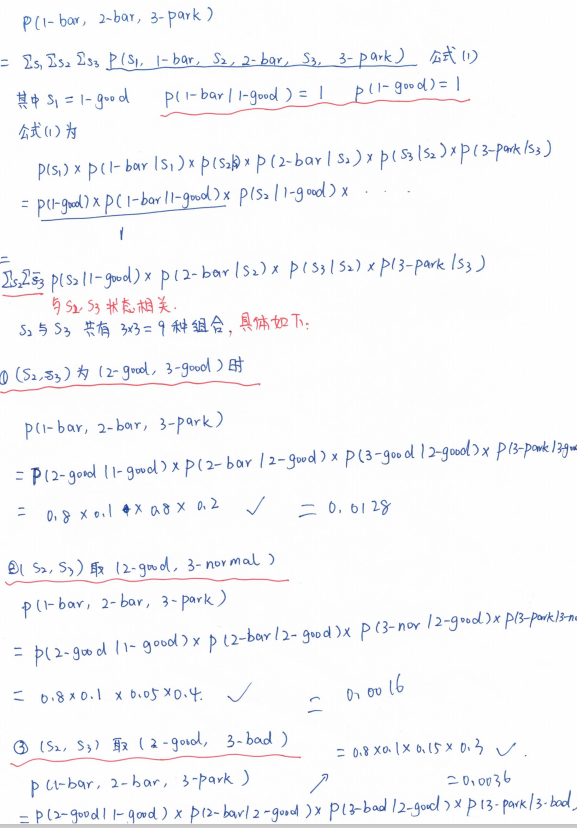 P(1-bar, 2-bar, 3-park)
= Σs₁ Σs₂ Σs₃ P(s₁, 1-bar, s₂, 2-bar, s₃, 3-park) 公式(1)
其中 s₁ = 1-good P(1-bar|1-good) = 1 P(1-good) = 1
公式(1)为
P(s₁) × P(1-bar|s₁) × P(s₂) × P(2-bar|s₂) × P(s₃|s₂) × P(3-park|s₃)
= P(1-good) × P(1-bar|1-good) × P(s₂|1-good) × · · ·
1
=
Σs₂Σs₃ P(s₂|1-good) × P(2-bar|s₂) × P(s₃|s₂) × P(3-park|s₃)
与s₂, s₃ 状态相关.
s₂与s₃ 共有 3×3 = 9 种组合, 具体如下:
① (s₂, s₃) 为 (2-good, 3-good) 时
P(1-bar, 2-bar, 3-park)
= P(2-good|1-good) × P(2-bar|2-good) × P(3-good|2-good) × P(3-park|3-goo
= 0.8 × 0.1 × 0.8 × 0.2 ✓ = 0.0128
②(s₂, s₃) 取 (2-good, 3-normal)
P(1-bar, 2-bar, 3-park)
= P(2-good|1-good) × P(2-bar|2-good) × P(3-nor|2-good) × P(3-park|3-no
= 0.8×0.1 × 0.05×0.4. ✓ = 0.0016
③ (s₂, s₃) 取 (2-good, 3-bad) = 0.8×0.1×0.15×0.3 ✓.
P(1-bar, 2-bar, 3-park) ↗ = 0.0036
= P(2-good|1-good) × P(2-bar|2-good) × P(3-bad|2-good) × P(3-park|3-bad)